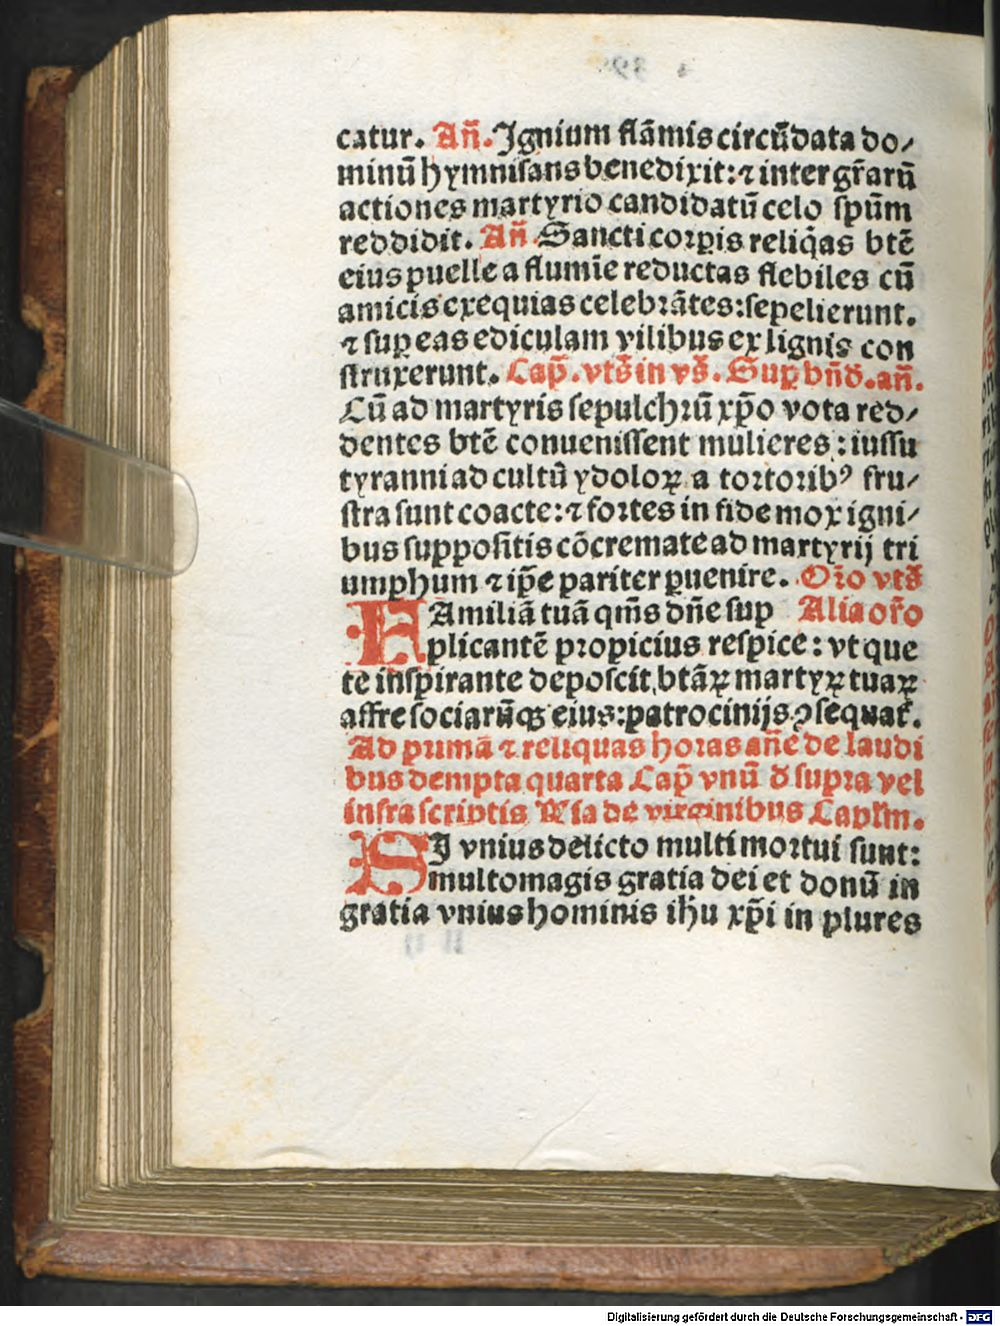 catur. Añ. Ignium flāmis circūdata do⸗
minū hymnisans benedixit: ⁊ inter gr̄arū
actiones martyrio candidatū celo sp̄um
reddidit. Añ. Sancti corꝑis reliq̄as btē
eius puelle a flumīe reductas flebiles cū
amicis exequias celebrātes: sepelierunt.
⁊ suꝑ eas ediculam vilibus ex lignis con
struxerunt. Cap̄. vts̄ in vs̄. Suꝑ bn̄d. an̄.
Cū ad martyris sepulchrū xp̄o vota red⸗
dentes btē conuenissent mulieres: iussu
tyranni ad cultū ydoloꝝ a tortoribꝰ fru⸗
stra sunt coacte: ⁊ fortes in fide mox igni⸗
bus suppositis cōcremate ad martyrij tri
umphum ⁊ ip̄e pariter ꝑuenire. Or̄o vts̄
FAmiliā tuā qm̄s dn̄e sup Alia or̄o
plicantē propicius respice: vt que
te inspirante deposcit, btāꝝ martyꝝ tuaꝝ
affre sociarūqꝫ eius: patrocinijs ꝯsequat̄.
Ad primā ⁊ reliquas horas an̄e de laudi
bus dempta quarta Cap̄ vnū d̄ supra vel
infra scriptis ℟ia de virginibus Caplm̄.
SI vnius delicto multi mortui sunt:
multomagis gratia dei et donū in
gratia vnius hominis ih̄u xp̄i in plures
Digitalisierung gefördert durch die Deutsche Forschungsgemeinschaft - DFG